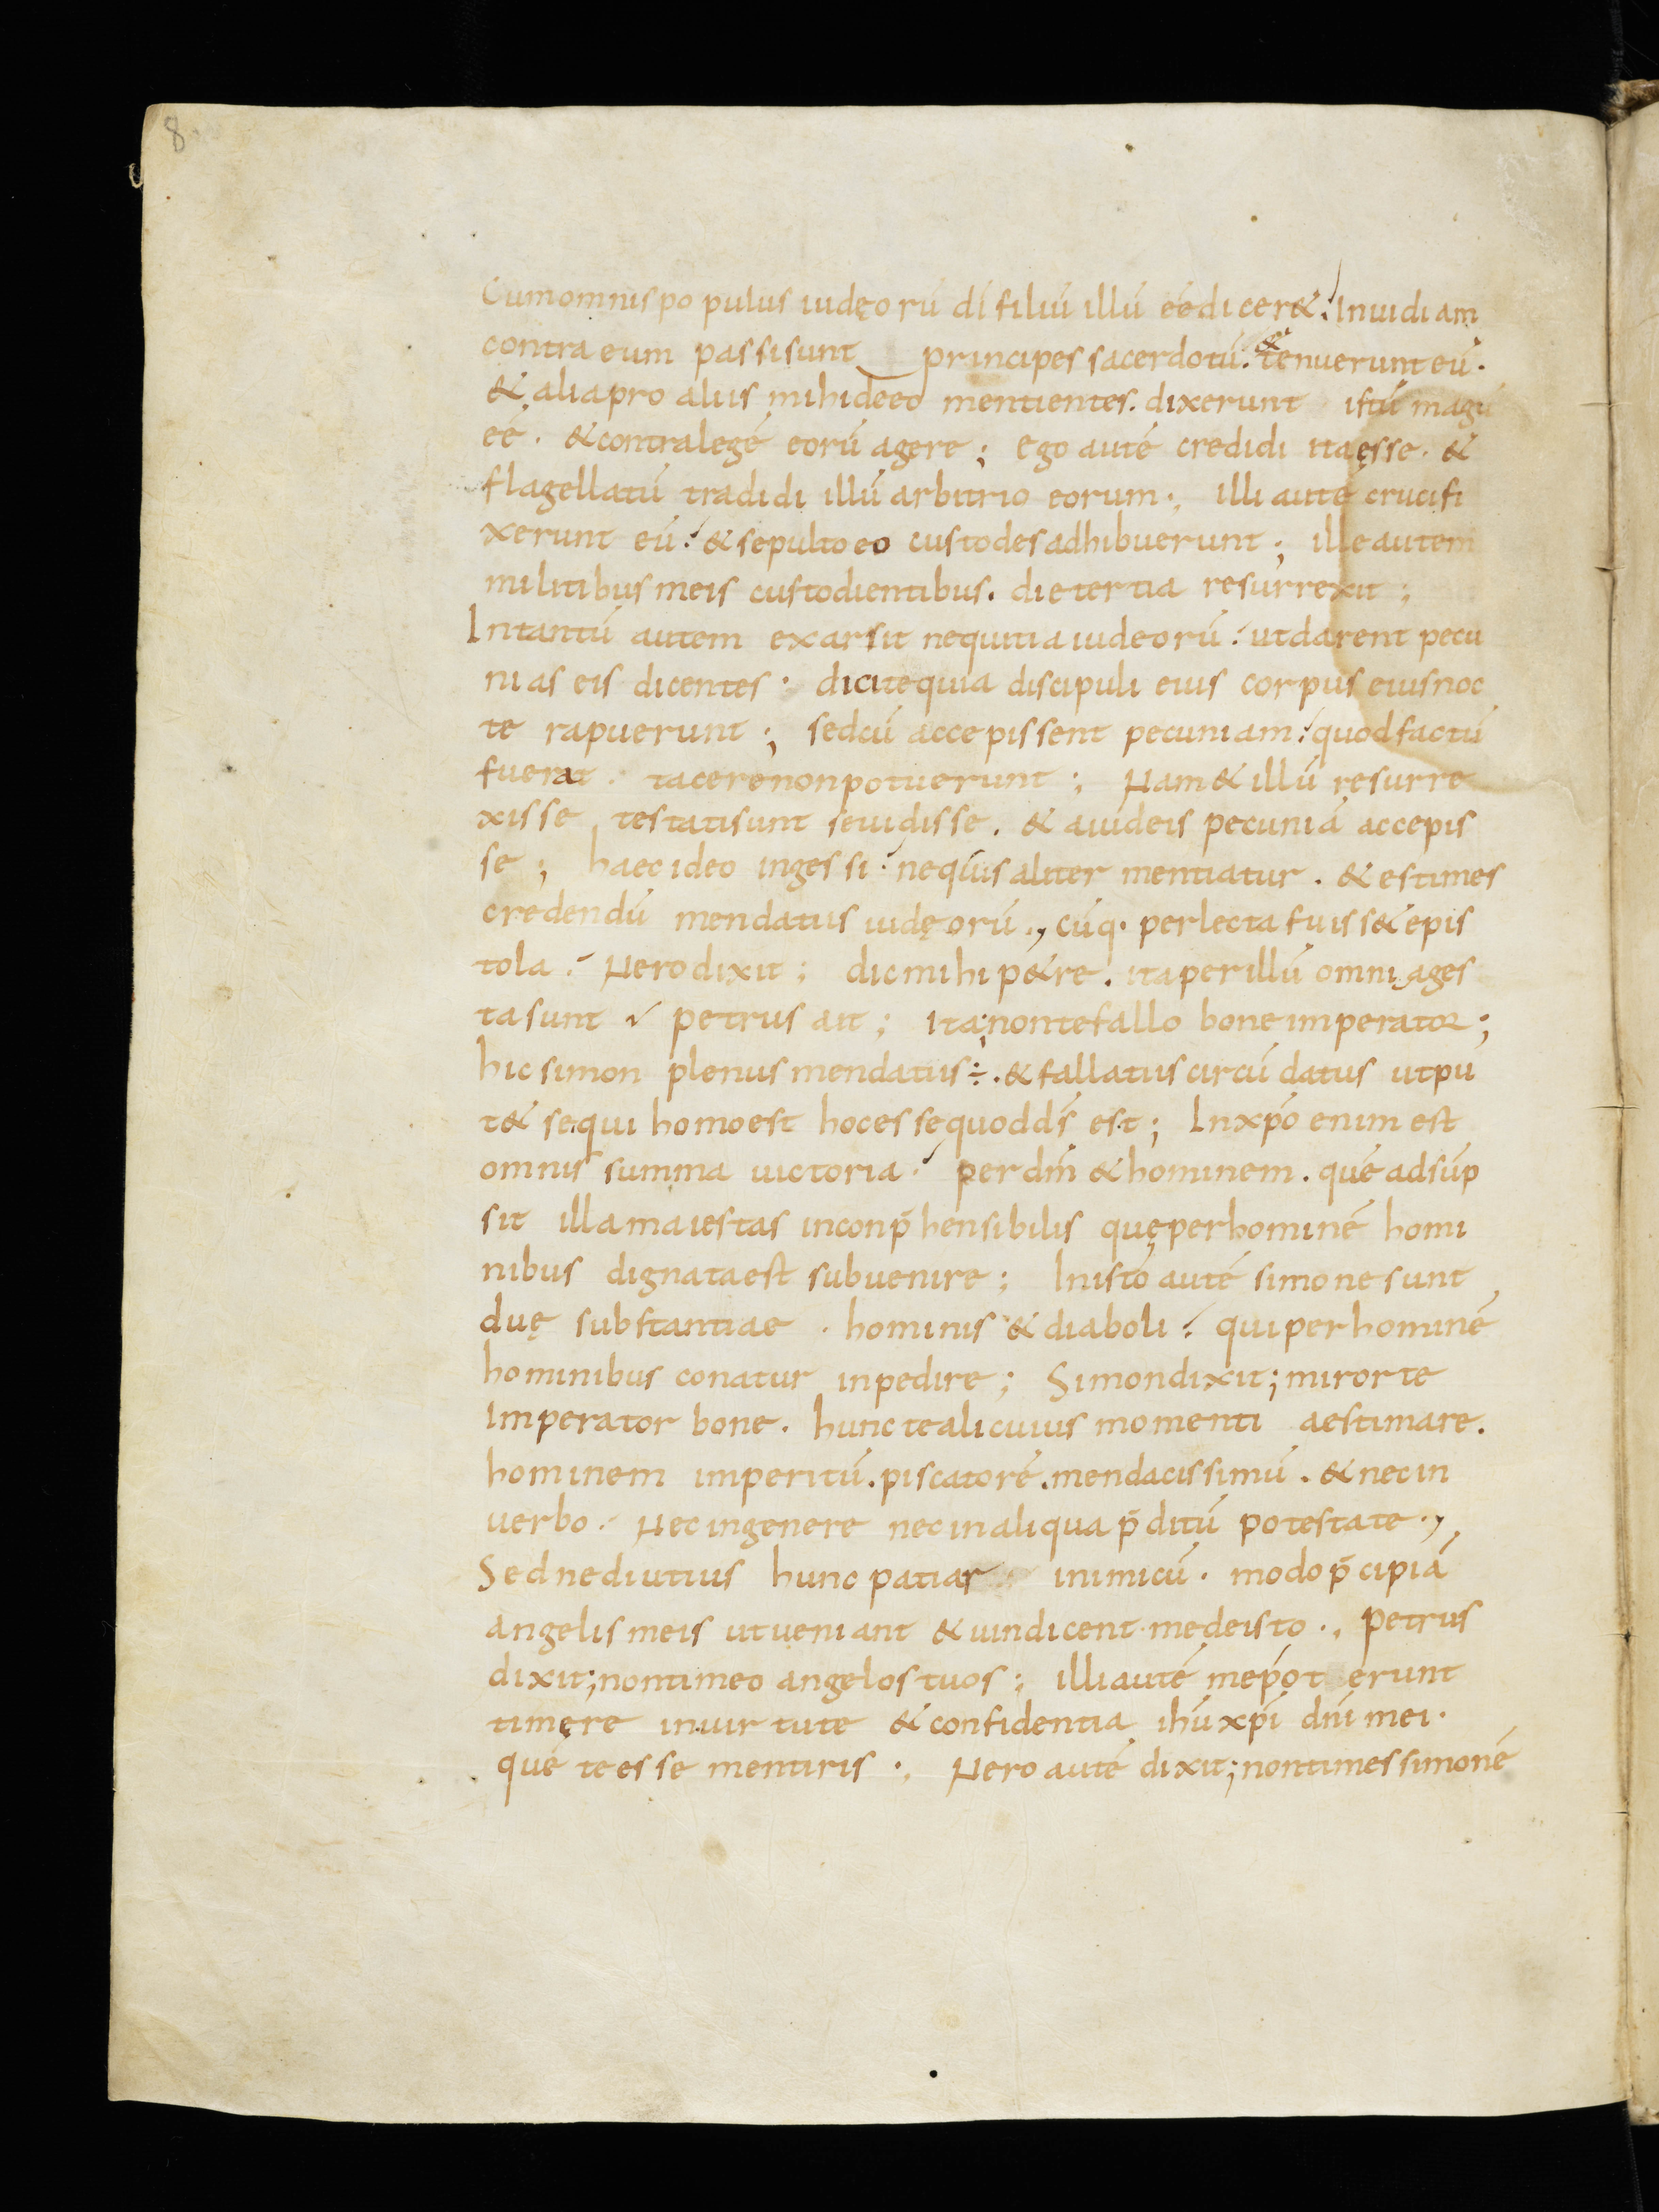 8
Cum omnis populus iudęorū dī filiū illū eē dicer&. Inuidiam
contra eum passi sunt principes sacerdotū. & tenuerunt eū.
& alia pro aliis mihi de eo mentientes. dixerunt istū magū
eē. & contra legē eorū agere; Ego autē credidi ita ęsse. &
flagellatū tradidi illū arbitrio eorum., Illi autē crucifi
xerunt eū. & sepulto eo custodes adhibuerunt; ille autem
militibus meis custodientibus. die tertia resurrexit;
Intantū autem exarsit nequitia iudeorū. ut darent pecu
nias eis dicentes. dicite quia discipuli eius corpus eius noc
te rapuerunt; sed cū accepissent pecuniam. quod factū
fuerat. tacere non potuerunt; Nam & illū resurre
xisse testati sunt se uidisse. & a iudeis pecuniā accepis
se; haec ideo ingessi. ne quis aliter mentiatur. & estimes
credendū mendatiis iudęorū., Cūq. perlecta fuiss& epis
tola. Nero dixit; dic mihi p&re. ita per illū omnia ges
ta sunt petrus ait; Ita; non te fallo bone imperator;
hic simon plenus mendatiis ÷. & fallatiis circūdatus ut pu
t& se qui homo est hoc esse quod dš est; In xpō enim est
omnis summa uictoria. per dm̄ & hominem. quē adsūp
sit illa maiestas inconp̄hensibilis quę per hominē homi
nibus dignata est subuenire; In isto autē simone sunt
duę substantiae. hominis & diaboli. qui per hominē
hominibus conatur inpedire; Simon dixit; miror te
Imperator bone. hunc te alicuius momenti aestimare.
hominem imperitū. piscatorē. mendacissimū. & nec in
uerbo. Nec in genere nec in aliqua p̄ditū potestate.,
Sed ne diutius hunc patiar inimicū. modo p̄cipiā
angelis meis ut ueniant & uindicent me de isto., petrus
dixit; non timeo angelos tuos; illi autē me pot erunt
timęre in uirtute & confidentia ihū xpī dnī mei.
quē te esse mentiris., Nero autē dixit; non times simonē